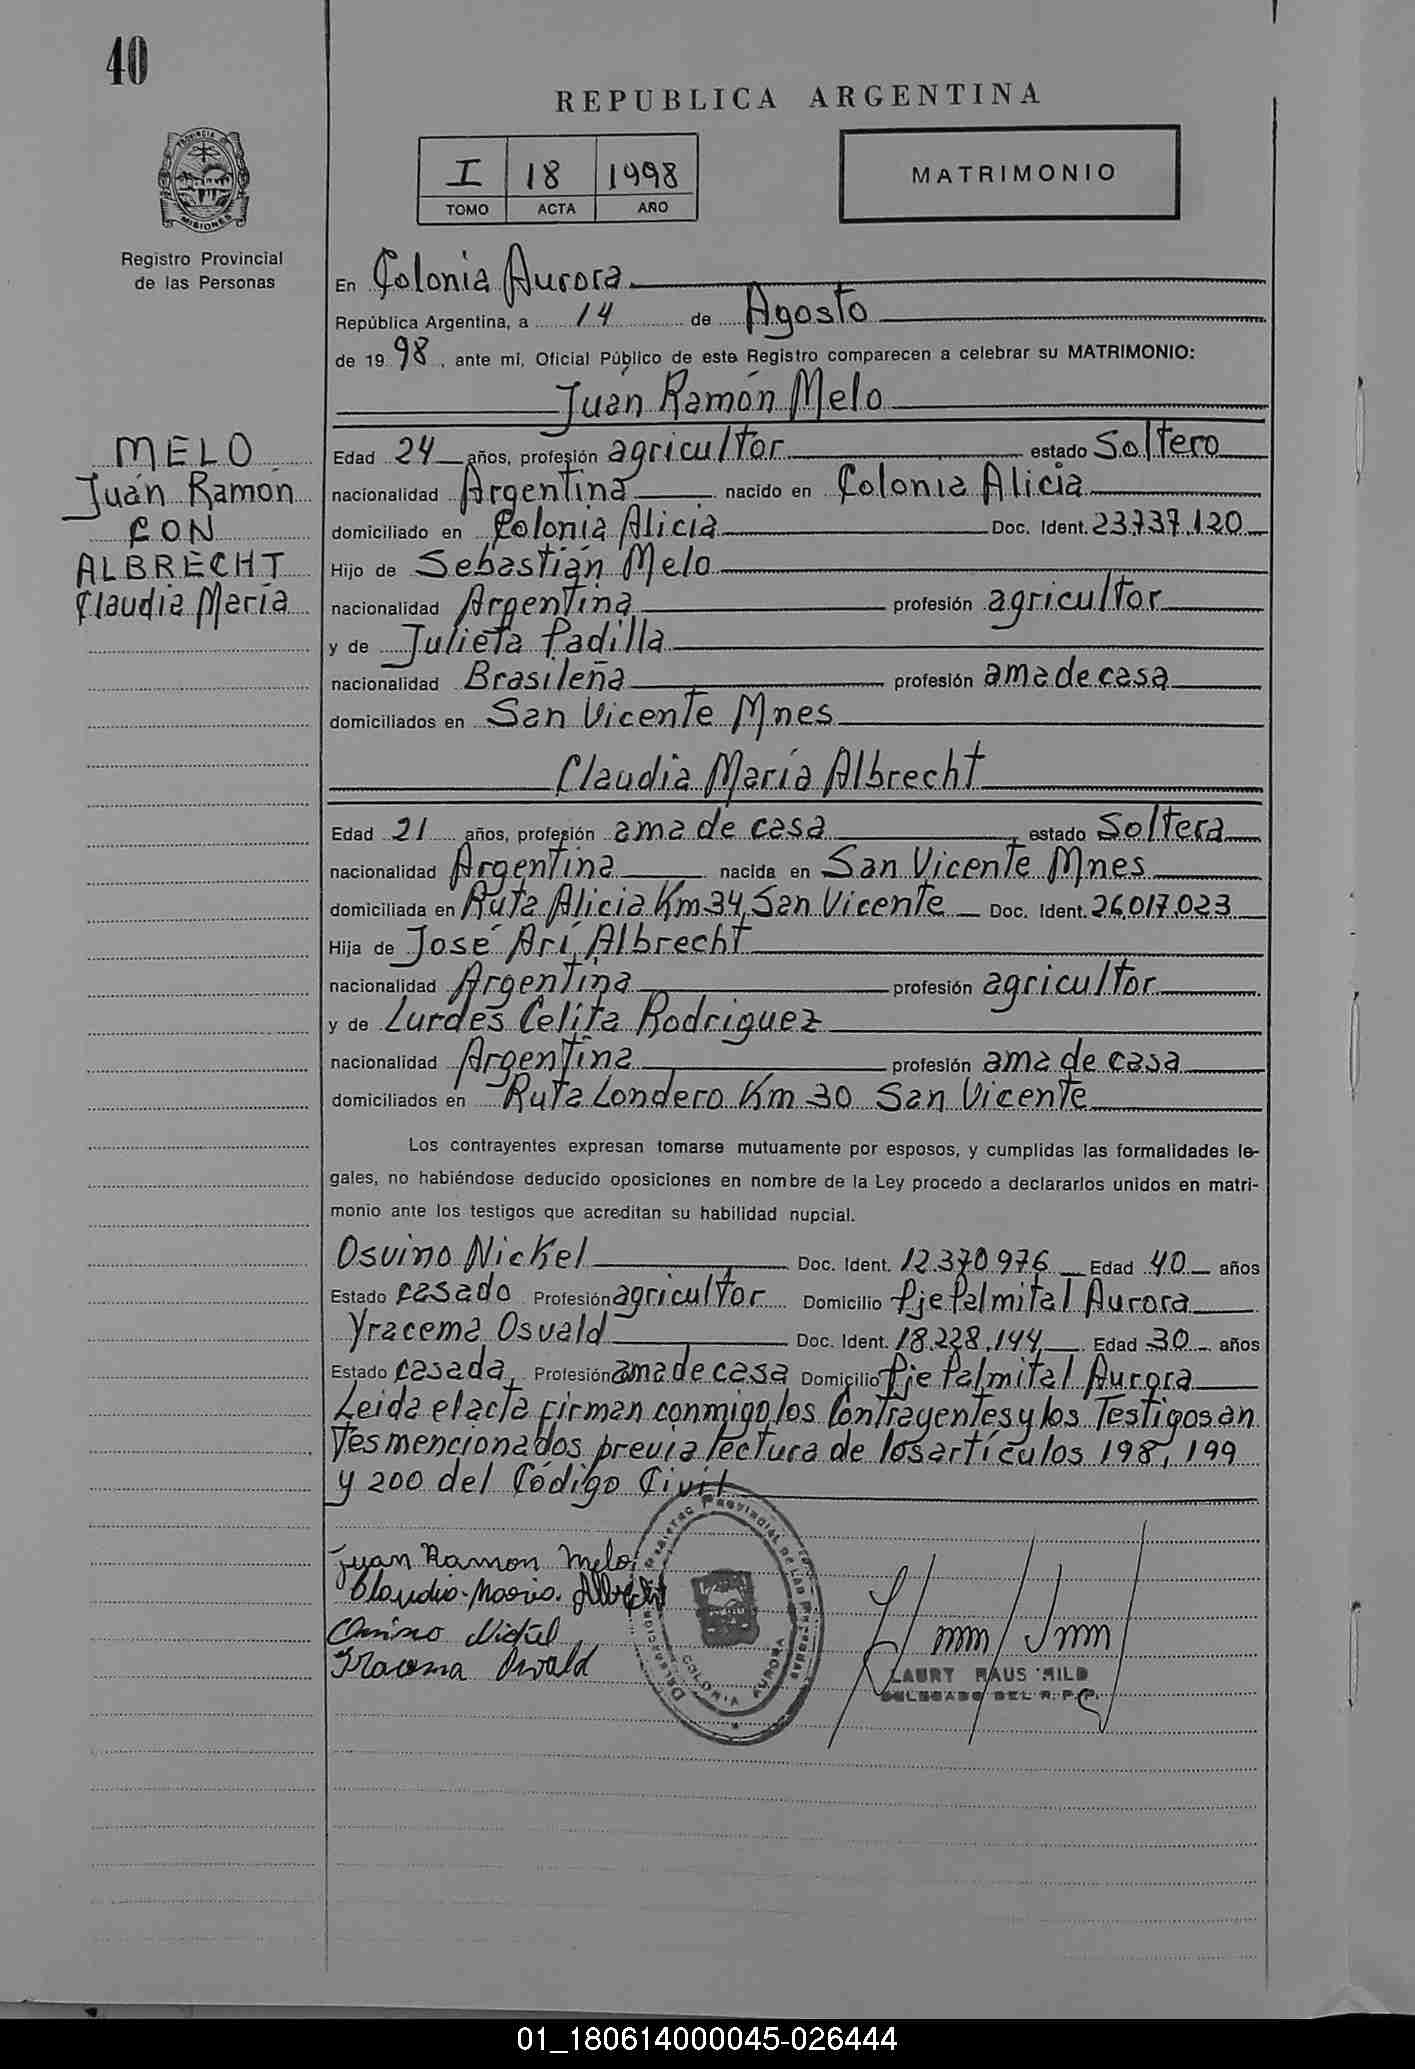 40
REPUBLICA ARGENTINA
I 18 1998
TOMO ACTA AÑO
MATRIMONIO
PROVINCIA DE MISIONES
Registro Provincial
de las Personas
En Colonia Aurora
República Argentina, a 14 de Agosto
de 1998, ante mí, Oficial Público de este Registro comparecen a celebrar su MATRIMONIO:
Juán Ramón Melo
MELO
Juán Ramón
CON
ALBRECHT
Claudia María
Edad 24 años, profesión agricultor estado Soltero
nacionalidad Argentina nacido en Colonia Alicia
domiciliado en Colonia Alicia Doc. Ident. 23.737.120
Hijo de Sebastián Melo
nacionalidad Argentina profesión agricultor
y de Julieta Padilla
nacionalidad Brasileña profesión ama de casa
domiciliados en San Vicente Mnes
Claudia María Albrecht
Edad 21 años, profesión ama de casa estado Soltera
nacionalidad Argentina nacida en San Vicente Mnes
domiciliada en Ruta Alicia Km 34, San Vicente Doc. Ident. 26.017.023
Hija de José Arí Albrecht
nacionalidad Argentina profesión agricultor
y de Lurdes Celita Rodriguez
nacionalidad Argentina profesión ama de casa
domiciliados en Ruta Londero Km 30 San Vicente
Los contrayentes expresan tomarse mutuamente por esposos, y cumplidas las formalidades le-
gales, no habiéndose deducido oposiciones en nombre de la Ley procedo a declararlos unidos en matri-
monio ante los testigos que acreditan su habilidad nupcial.
Osvino Nickel Doc. Ident. 12.370.976 Edad 40 años
Estado casado Profesión agricultor Domicilio Pje Palmital Aurora
Yracema Osvald Doc. Ident. 18.228.144 Edad 30 años
Estado casada Profesión ama de casa Domicilio Pje Palmital Aurora
Leida el acta firman conmigo, los Contrayentes y los Testigos an
tes mencionados previa lectura de los artículos 198, 199
y 200 del Código Civil
Juan Ramon Melo
Claudia Maria Albrecht
Osvino Nickel
Iracema Osvald
REGISTRO PROVINCIAL DE LAS PERSONAS
DELEGACION
COLONIA AURORA
LAURY HAUS MILD
DELEGADO DEL R.P.P.
01_180614000045-026444